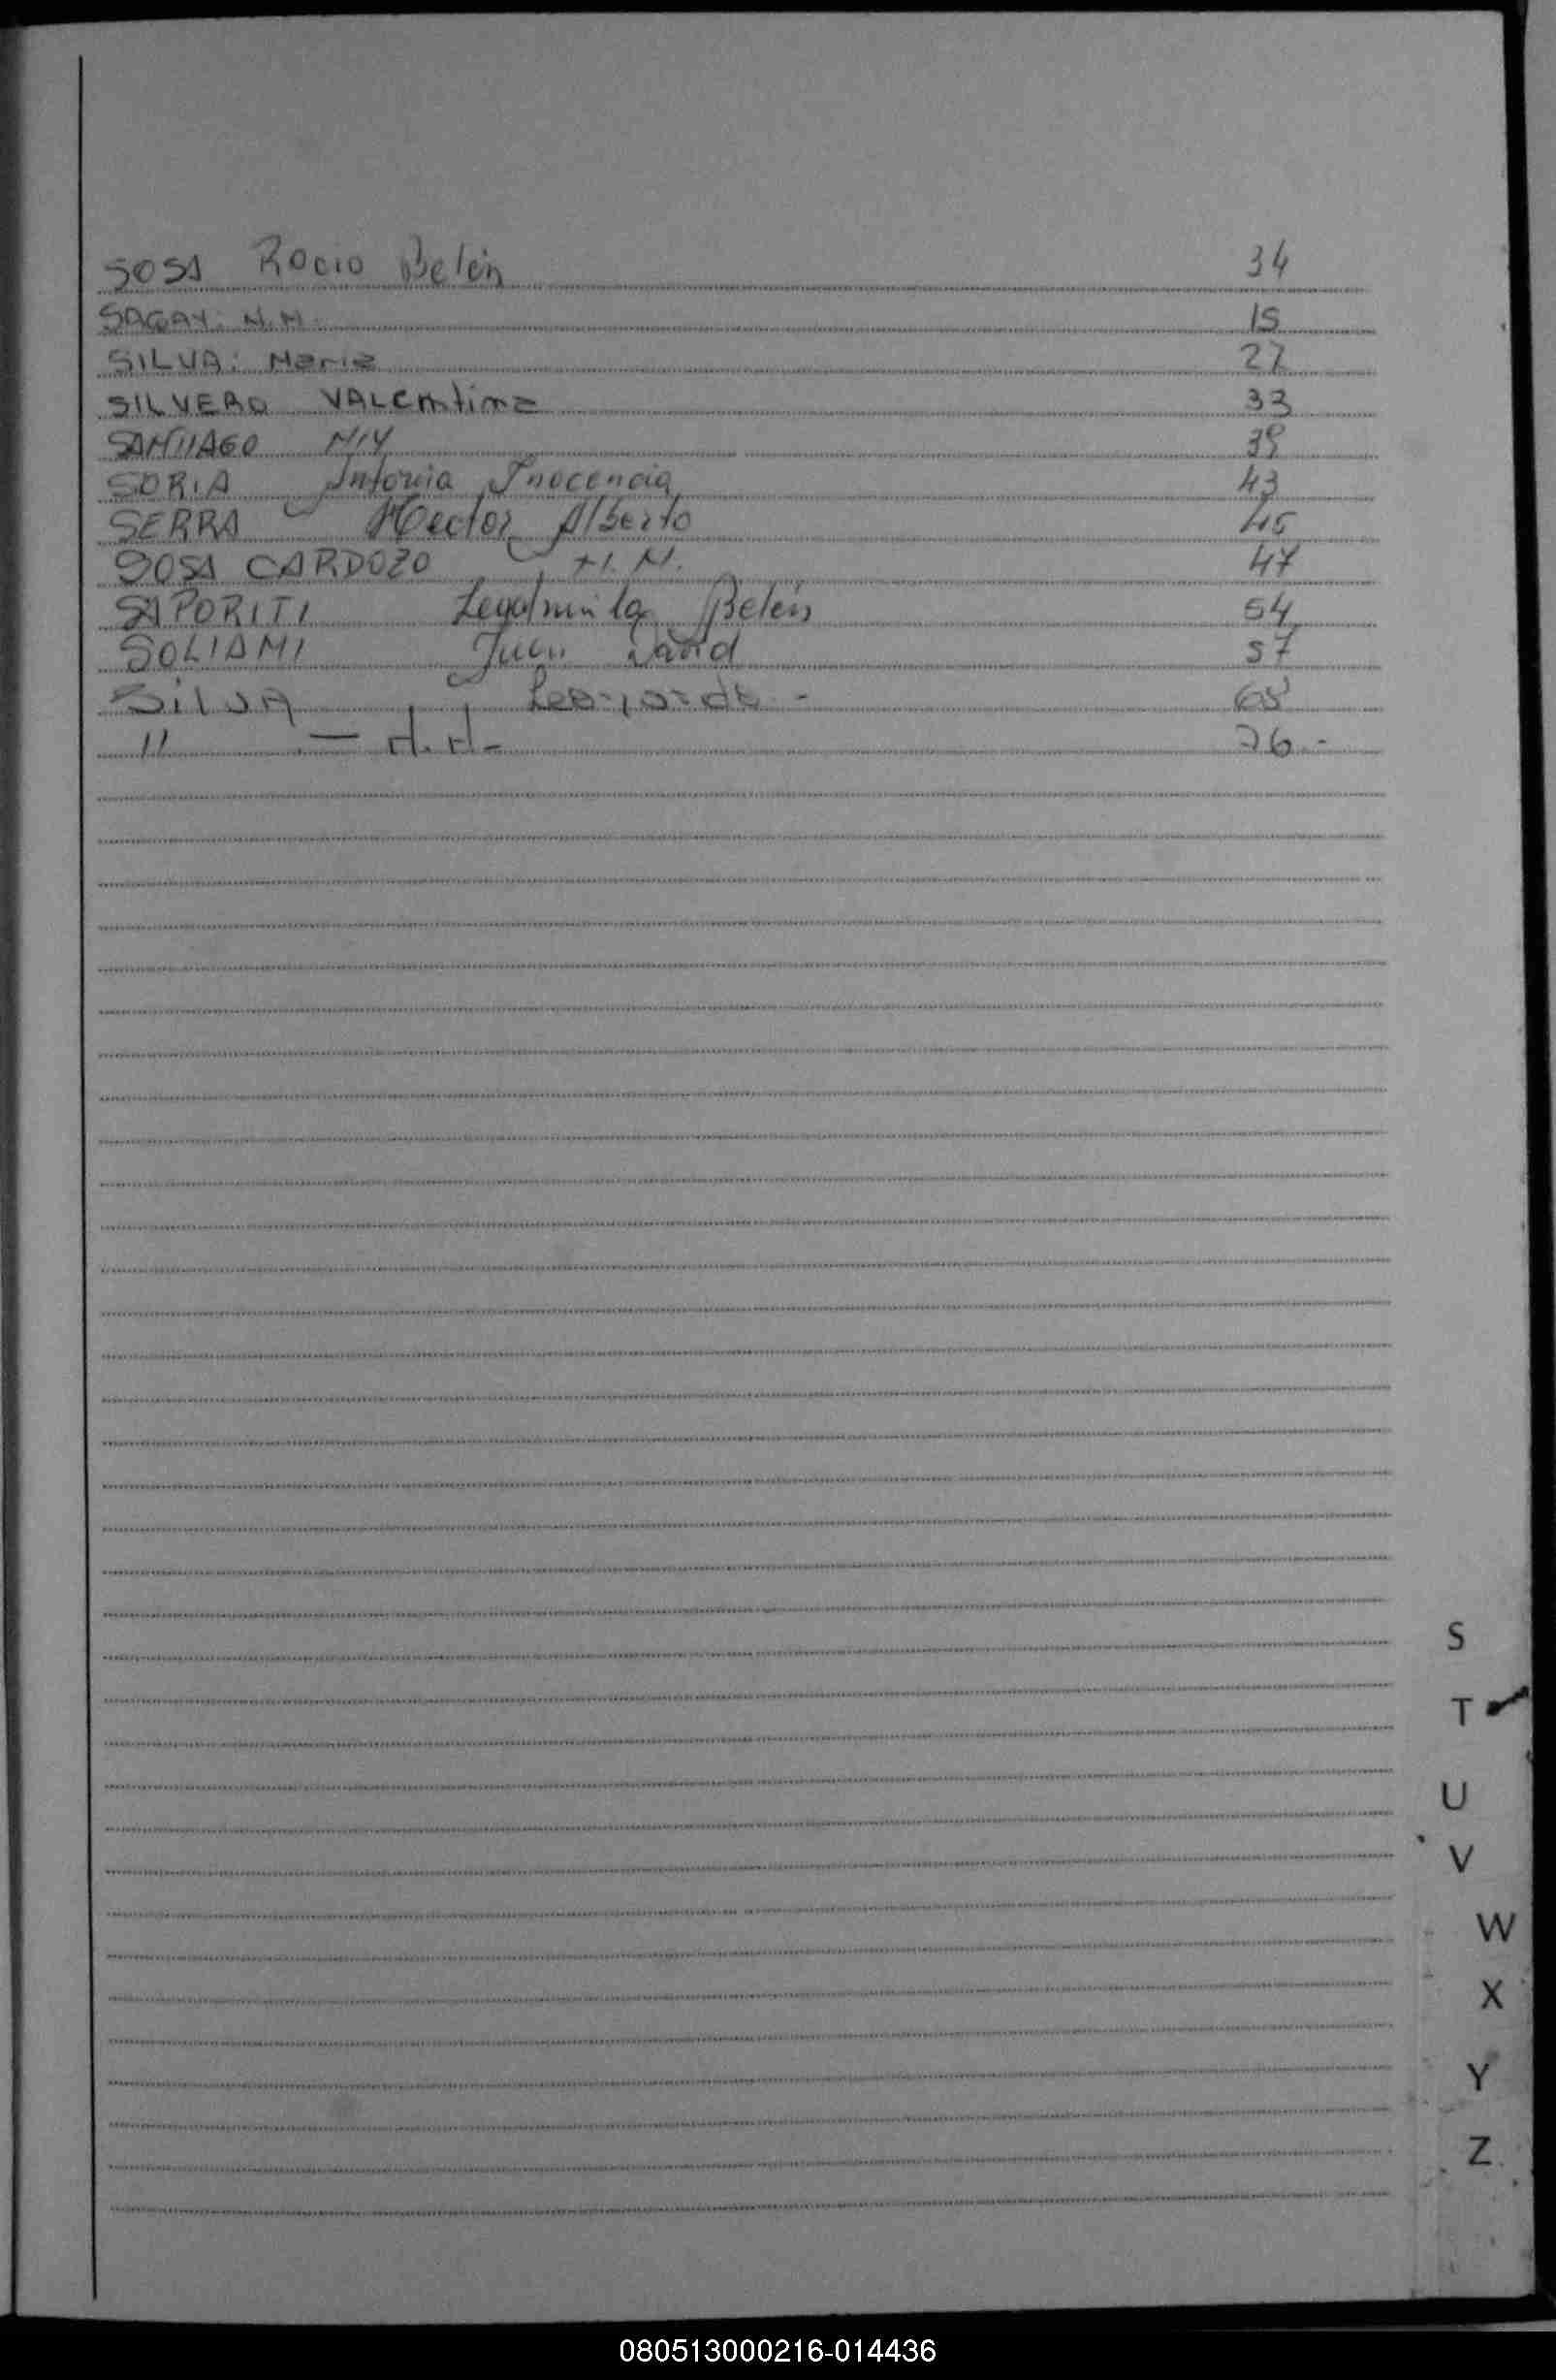 SOSA Rocio Belén 34
SAGAY. N.M. 15
SILVA: Maria 27
SILVERO VALENtina 33
SANTIAGO 39
SORIA Antonia Inocencia 43
SERRA Hector Alberto 45
SOSA CARDOZO 47
SAPORITI Belén 54
SOLIAMI Juan David 57
SilVA Leonardo - 68
" — H.H- 76.-
S
T
U
V
W
X
Y
Z
080513000216-014436